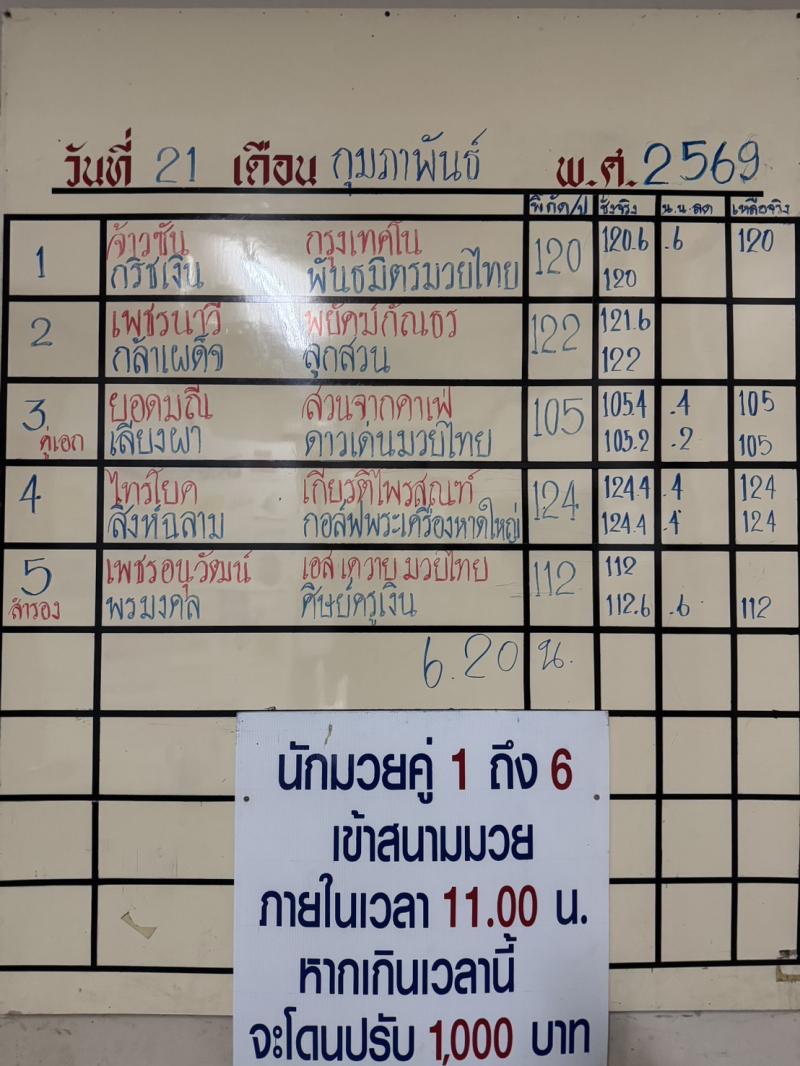 วันที่ 21 เดือน กุมภาพันธ์ พ.ศ. 2569
พิกัด/ป ชั่งจริง น.น.ลด เหลือจริง
1 จ้าวซัน กรุงเทศโน 120 120.6 .6 120
กริชเงิน พันธมิตรมวยไทย 120
2 เพชรนาวี พยัคฆ์กัณธร 122 121.6
กล้าเผด็จ ลูกสวน 122
3 ยอดมณี สวนจากคาเฟ่ 105 105.4 .4 105
คู่เอก เลียงผา ดาวเด่นมวยไทย 105.2 .2 105
4 ไทรโยค เกียรติไพรสณฑ์ 124 124.4 .4 124
สิงห์ฉลาม กอล์ฟพระเครื่องหาดใหญ่ 124.4 .4 124
5 เพชรอนุวัฒน์ เอส เค วาย มวยไทย 112 112
สำรอง พรมงคล ศิษย์ครูเงิน 112.6 .6 112
6.20 น.
นักมวยคู่ 1 ถึง 6
เข้าสนามมวย
ภายในเวลา 11.00 น.
หากเกินเวลานี้
จะโดนปรับ 1,000 บาท